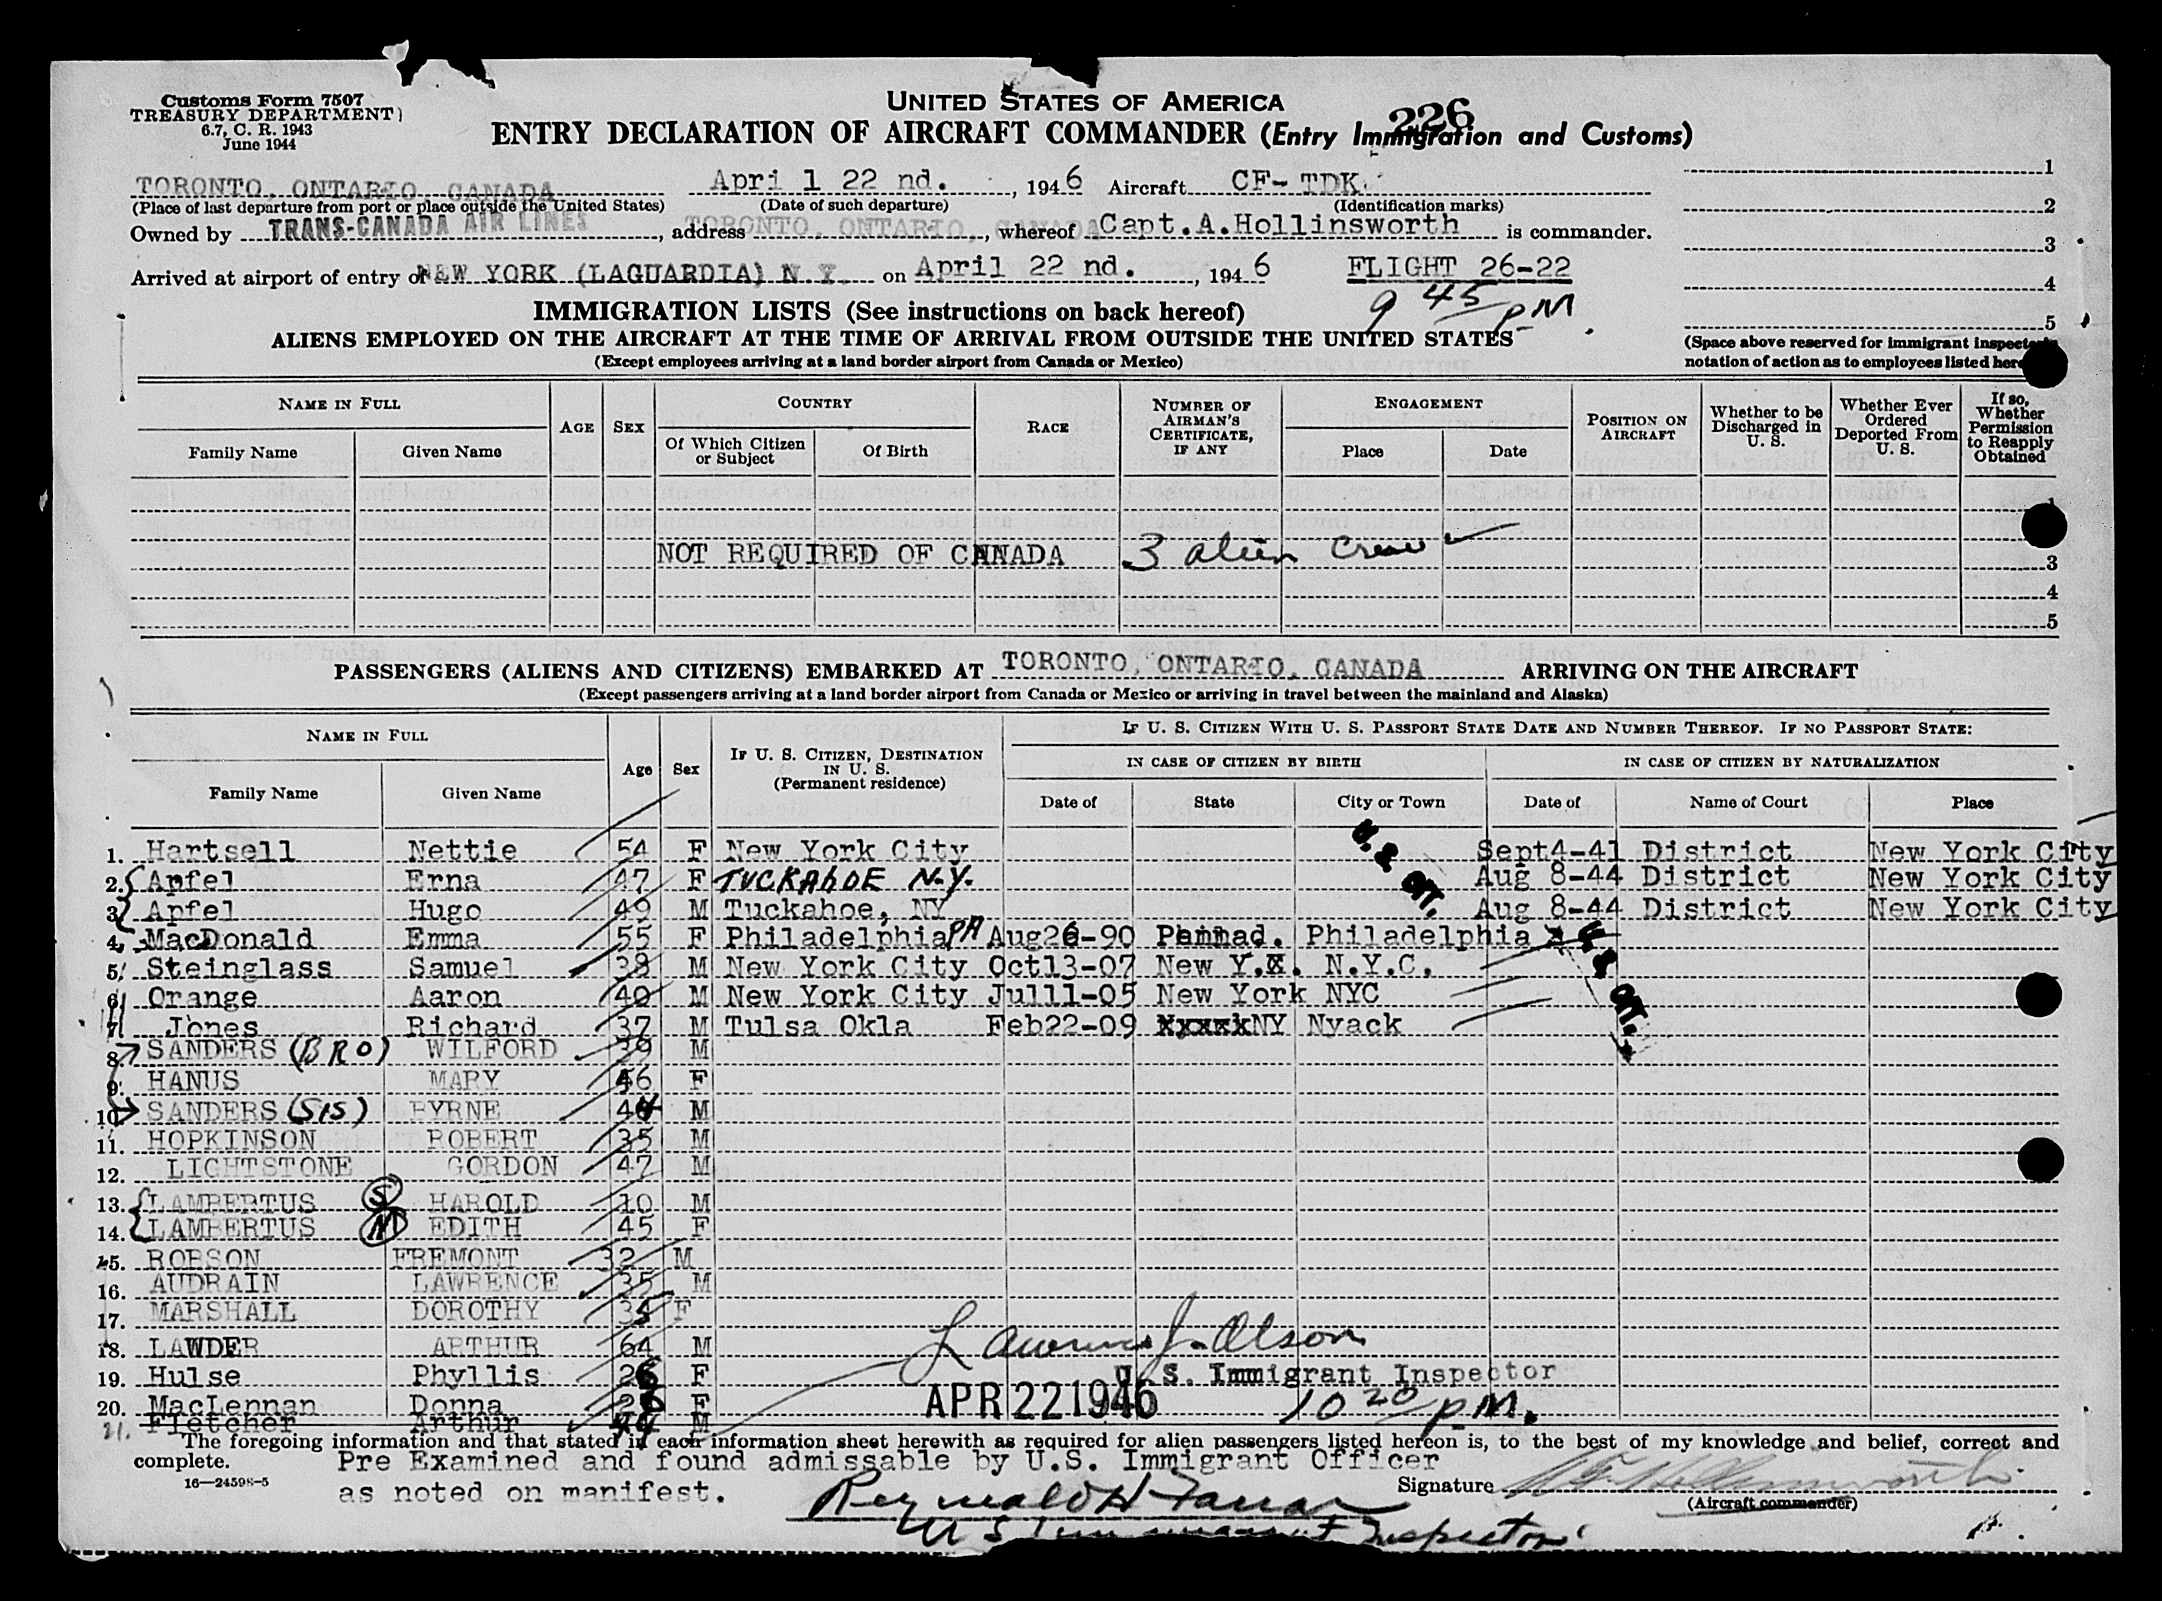 Customs Form 7507
TREASURY DEPARTMENT
6.7, C. R. 1943
June 1944
UNITED STATES OF AMERICA
ENTRY DECLARATION OF AIRCRAFT COMMANDER (Entry Immigration and Customs)
226
TORONTO, ONTARIO, CANADA April 22 nd., 1946 Aircraft CF-TDK
(Place of last departure from port or place outside the United States) (Date of such departure) (Identification marks)
Owned by TRANS-CANADA AIR LINES, address TORONTO, ONTARIO, CANADA, whereof Capt.A.Hollinsworth is commander.
Arrived at airport of entry of NEW YORK (LAGUARDIA) N.Y. on April 22 nd., 1946 FLIGHT 26-22
9 45 PM
1
2
3
4
5
(Space above reserved for immigrant inspector's
notation of action as to employees listed here
IMMIGRATION LISTS (See instructions on back hereof)
ALIENS EMPLOYED ON THE AIRCRAFT AT THE TIME OF ARRIVAL FROM OUTSIDE THE UNITED STATES
(Except employees arriving at a land border airport from Canada or Mexico)
NAME IN FULL AGE SEX COUNTRY RACE NUMBER OF AIRMAN'S CERTIFICATE, IF ANY ENGAGEMENT POSITION ON AIRCRAFT Whether to be Discharged in U. S. Whether Ever Ordered Deported From U. S. If so, Whether Permission to Reapply Obtained
Family Name Given Name Of Which Citizen or Subject Of Birth Place Date
1
NOT REQUIRED OF CANADA 3 alien crew
3
4
5
PASSENGERS (ALIENS AND CITIZENS) EMBARKED AT TORONTO, ONTARIO, CANADA ARRIVING ON THE AIRCRAFT
(Except passengers arriving at a land border airport from Canada or Mexico or arriving in travel between the mainland and Alaska)
NAME IN FULL Age Sex IF U. S. CITIZEN, DESTINATION IN U. S. (Permanent residence) IF U. S. CITIZEN WITH U. S. PASSPORT STATE DATE AND NUMBER THEREOF. IF NO PASSPORT STATE:
IN CASE OF CITIZEN BY BIRTH IN CASE OF CITIZEN BY NATURALIZATION
Family Name Given Name Date of State City or Town Date of Name of Court Place
1. Hartsell Nettie 54 F New York City Sept4-41 District New York City
2. Apfel Erna 47 F TUCKAhOE N.Y. Aug 8-44 District New York City
3. Apfel Hugo 49 M Tuckahoe, NY Aug 8-44 District New York City
U. S. CIT.
4. MacDonald Emma 55 F Philadelphia PA Aug26-90 Penna. Philadelphia
5. Steinglass Samuel 38 M New York City Oct13-07 New Y.X. N.Y.C.
6. Orange Aaron 40 M New York City Jul11-05 New York NYC
7. Jones Richard 37 M Tulsa Okla Feb22-09 xxxxxNY Nyack
U. S. CIT.
8. SANDERS (BRO) WILFORD 39 M
9. HANUS MARY 56 F
10. SANDERS (SIS) BYRNE 44 M
11. HOPKINSON ROBERT 35 M
12. LICHTSTONE GORDON 47 M
13. LAMBERTUS S HAROLD 10 M
14. LAMBERTUS M EDITH 45 F
15. ROBSON FREMONT 32 M
16. AUDRAIN LAWRENCE 35 M
17. MARSHALL DOROTHY 35 F
18. LAWDER ARTHUR 64 M
19. Hulse Phyllis 26 F
20. MacLennan Donna 26 F
21. Fletcher Arthur 44 M
Lawrence J. Olson
U. S. Immigrant Inspector
APR 22 1946 10 20 PM.
The foregoing information and that stated in each information sheet herewith as required for alien passengers listed hereon is, to the best of my knowledge and belief, correct and
complete. Pre Examined and found admissable by U.S. Immigrant Officer
16—24598-5 as noted on manifest. Signature
(Aircraft commander)
Reynold H Farrar
U S Immigrant Inspector